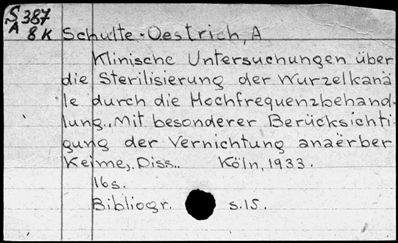 S 387
A 8K
Schulte-Oestrich, A
Klinische Untersuchungen über
die Sterilisierung der Wurzelkanä
le durch die Hochfrequenzbehand-
lung., Mit besonderer Berücksichti-
gung der Vernichtung anaërber
Keime, Diss.. Köln, 1933.
16s.
Bibliogr. s.15.